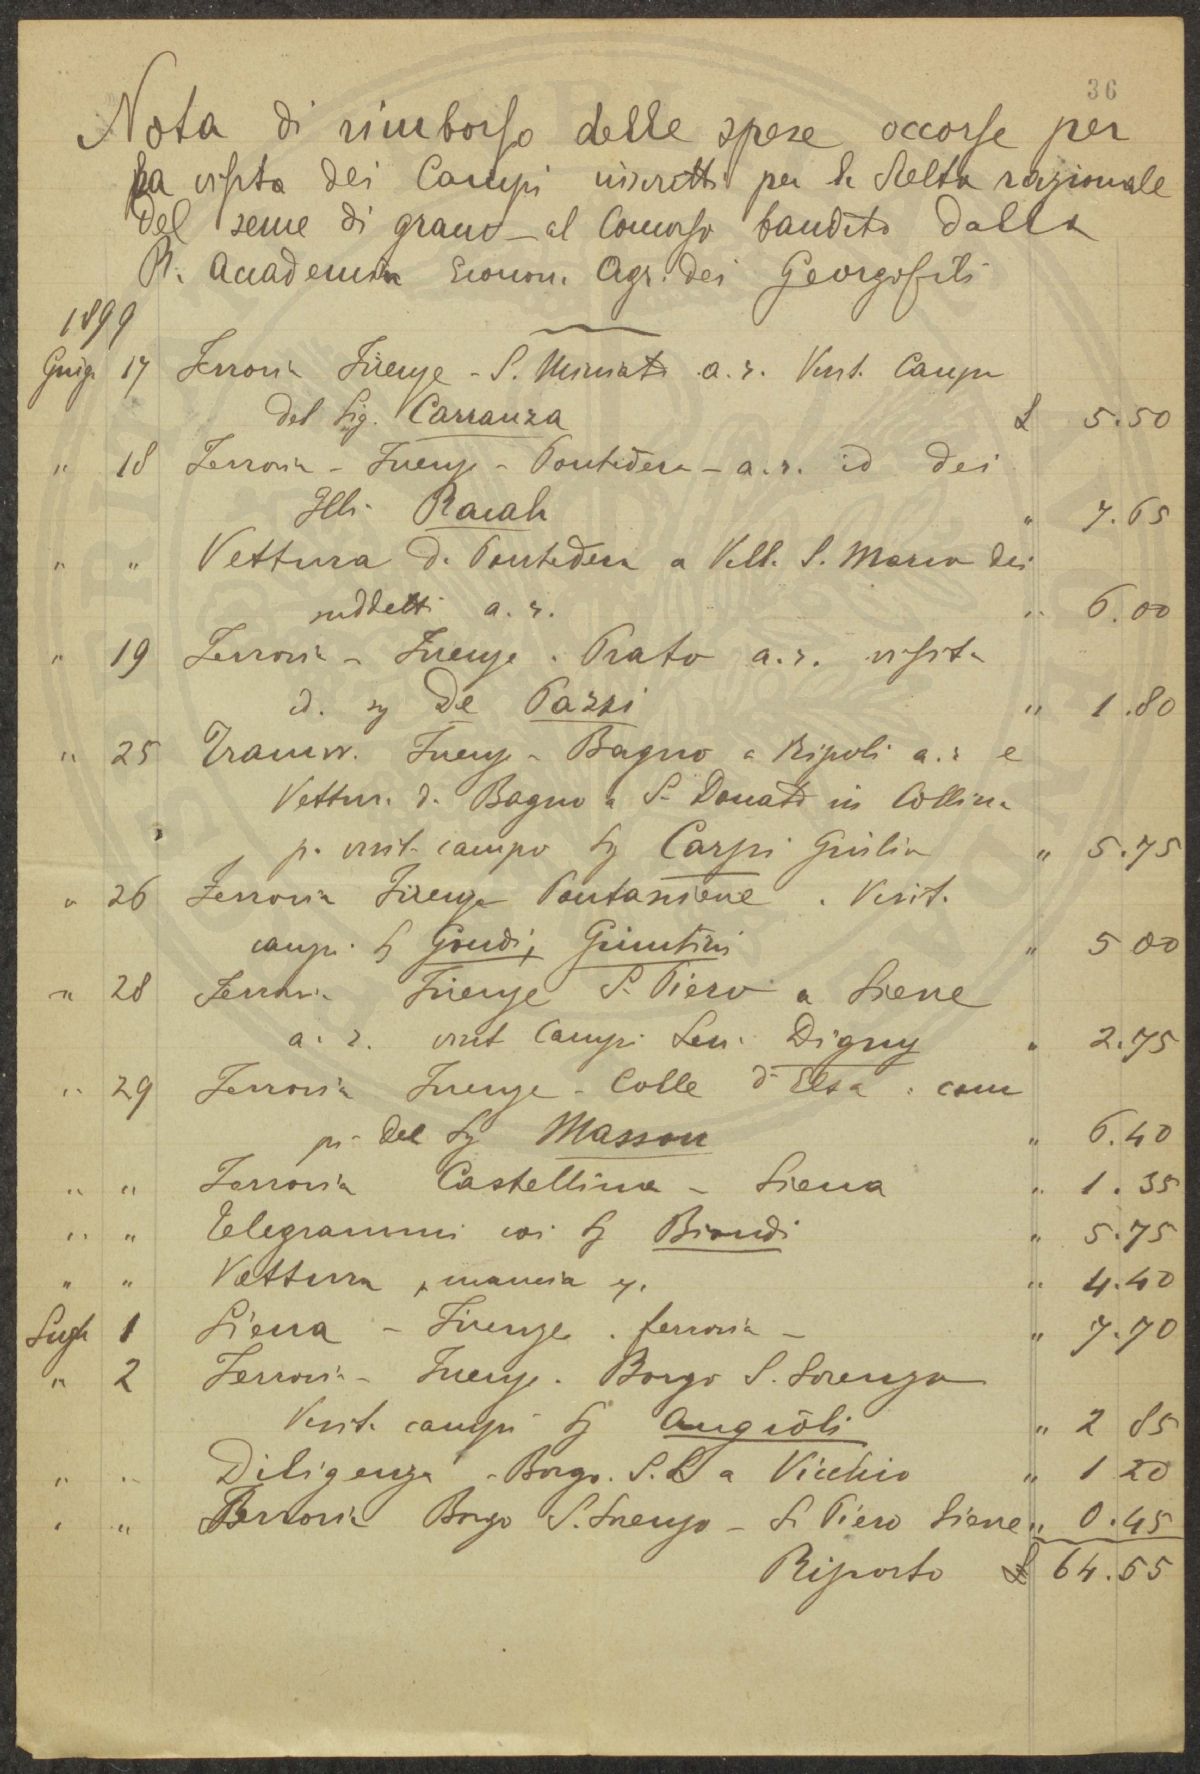 36
Nota di rimborso delle spese occorse per
la visita dei Campi inscritti per la Scelta razionale
del seme di grano al Concorso bandito dalla
R. Accademia Econom. Agr. dei Georgofili
1899
Giug. 17 Ferrovia Firenze - S. Miniato a. r. Visit. Campi
del Sig. Carranza £ 5.50
" 18 Ferrovia - Firenze - Pontedera - a. r. id dei
Racah " 7.65
" " Vettura da Pontedera a Vill. S. Marco dei
suddetti a. r. " 6.00
" 19 Ferrovia - Firenze - Prato a. r. visita
id. Sig De Pazzi " 1.80
" 25 Tramw. Firenze - Bagno a Ripoli a. r e
Vettura da Bagno a S. Donato in Collina
p. visit. campo Sig Carpi Giulia " 5.75
" 26 Ferrovia Firenze Pontassieve . Visit.
campi Sig Gondi, Giuntini " 5 00
" 28 Ferrovia Firenze S. Piero a Sieve
a. r. visit Campi Sen. Digny " 2.75
" 29 Ferrovia Firenze - Colle d'Elsa . cam
pi del Sig Masson " 6.40
" " Ferrovia Castellina - Siena " 1.35
" " Telegrammi coi Sig Biondi " 5.75
" " Vettura, mancia " 4.40
Lugl. 1 Siena - Firenze . ferrovia - " 7.70
" 2 Ferrovia - Firenze . Borgo S. Lorenzo
Visit. campi Sig Angiòli " 2 85
" " Diligenza - Borgo. S. L a Vicchio " 1 20
" " Ferrovia Borgo S. Lorenzo - S. Piero Sieve " 0.45
Riporto £ 64.55